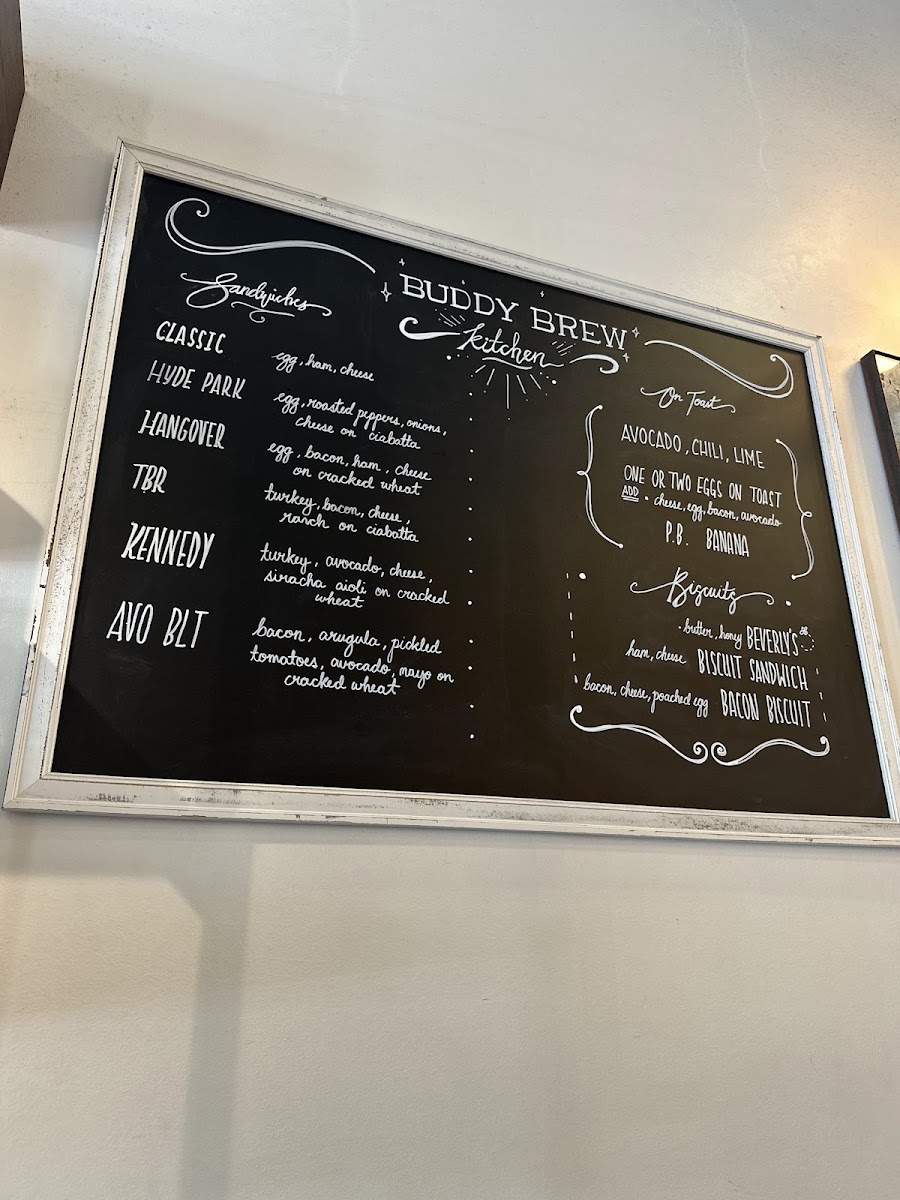 BUDDY BREW
kitchen
Sandwiches
CLASSIC
egg, ham, cheese
HYDE PARK
egg, roasted peppers, onions,
cheese on ciabatta
HANGOVER
egg, bacon, ham, cheese
on cracked wheat
TBR
turkey, bacon, cheese,
ranch on ciabatta
KENNEDY
turkey, avocado, cheese,
siracha aioli on cracked
wheat
AVO BLT
bacon, arugula, pickled
tomatoes, avocado, mayo on
cracked wheat
On Toast
AVOCADO, CHILI, LIME
ONE OR TWO EGGS ON TOAST
ADD • cheese, egg, bacon, avocado
P.B. BANANA
Biscuits
butter, honey BEVERLY'S
ham, cheese BISCUIT SANDWICH
bacon, cheese, poached egg BACON BISCUIT